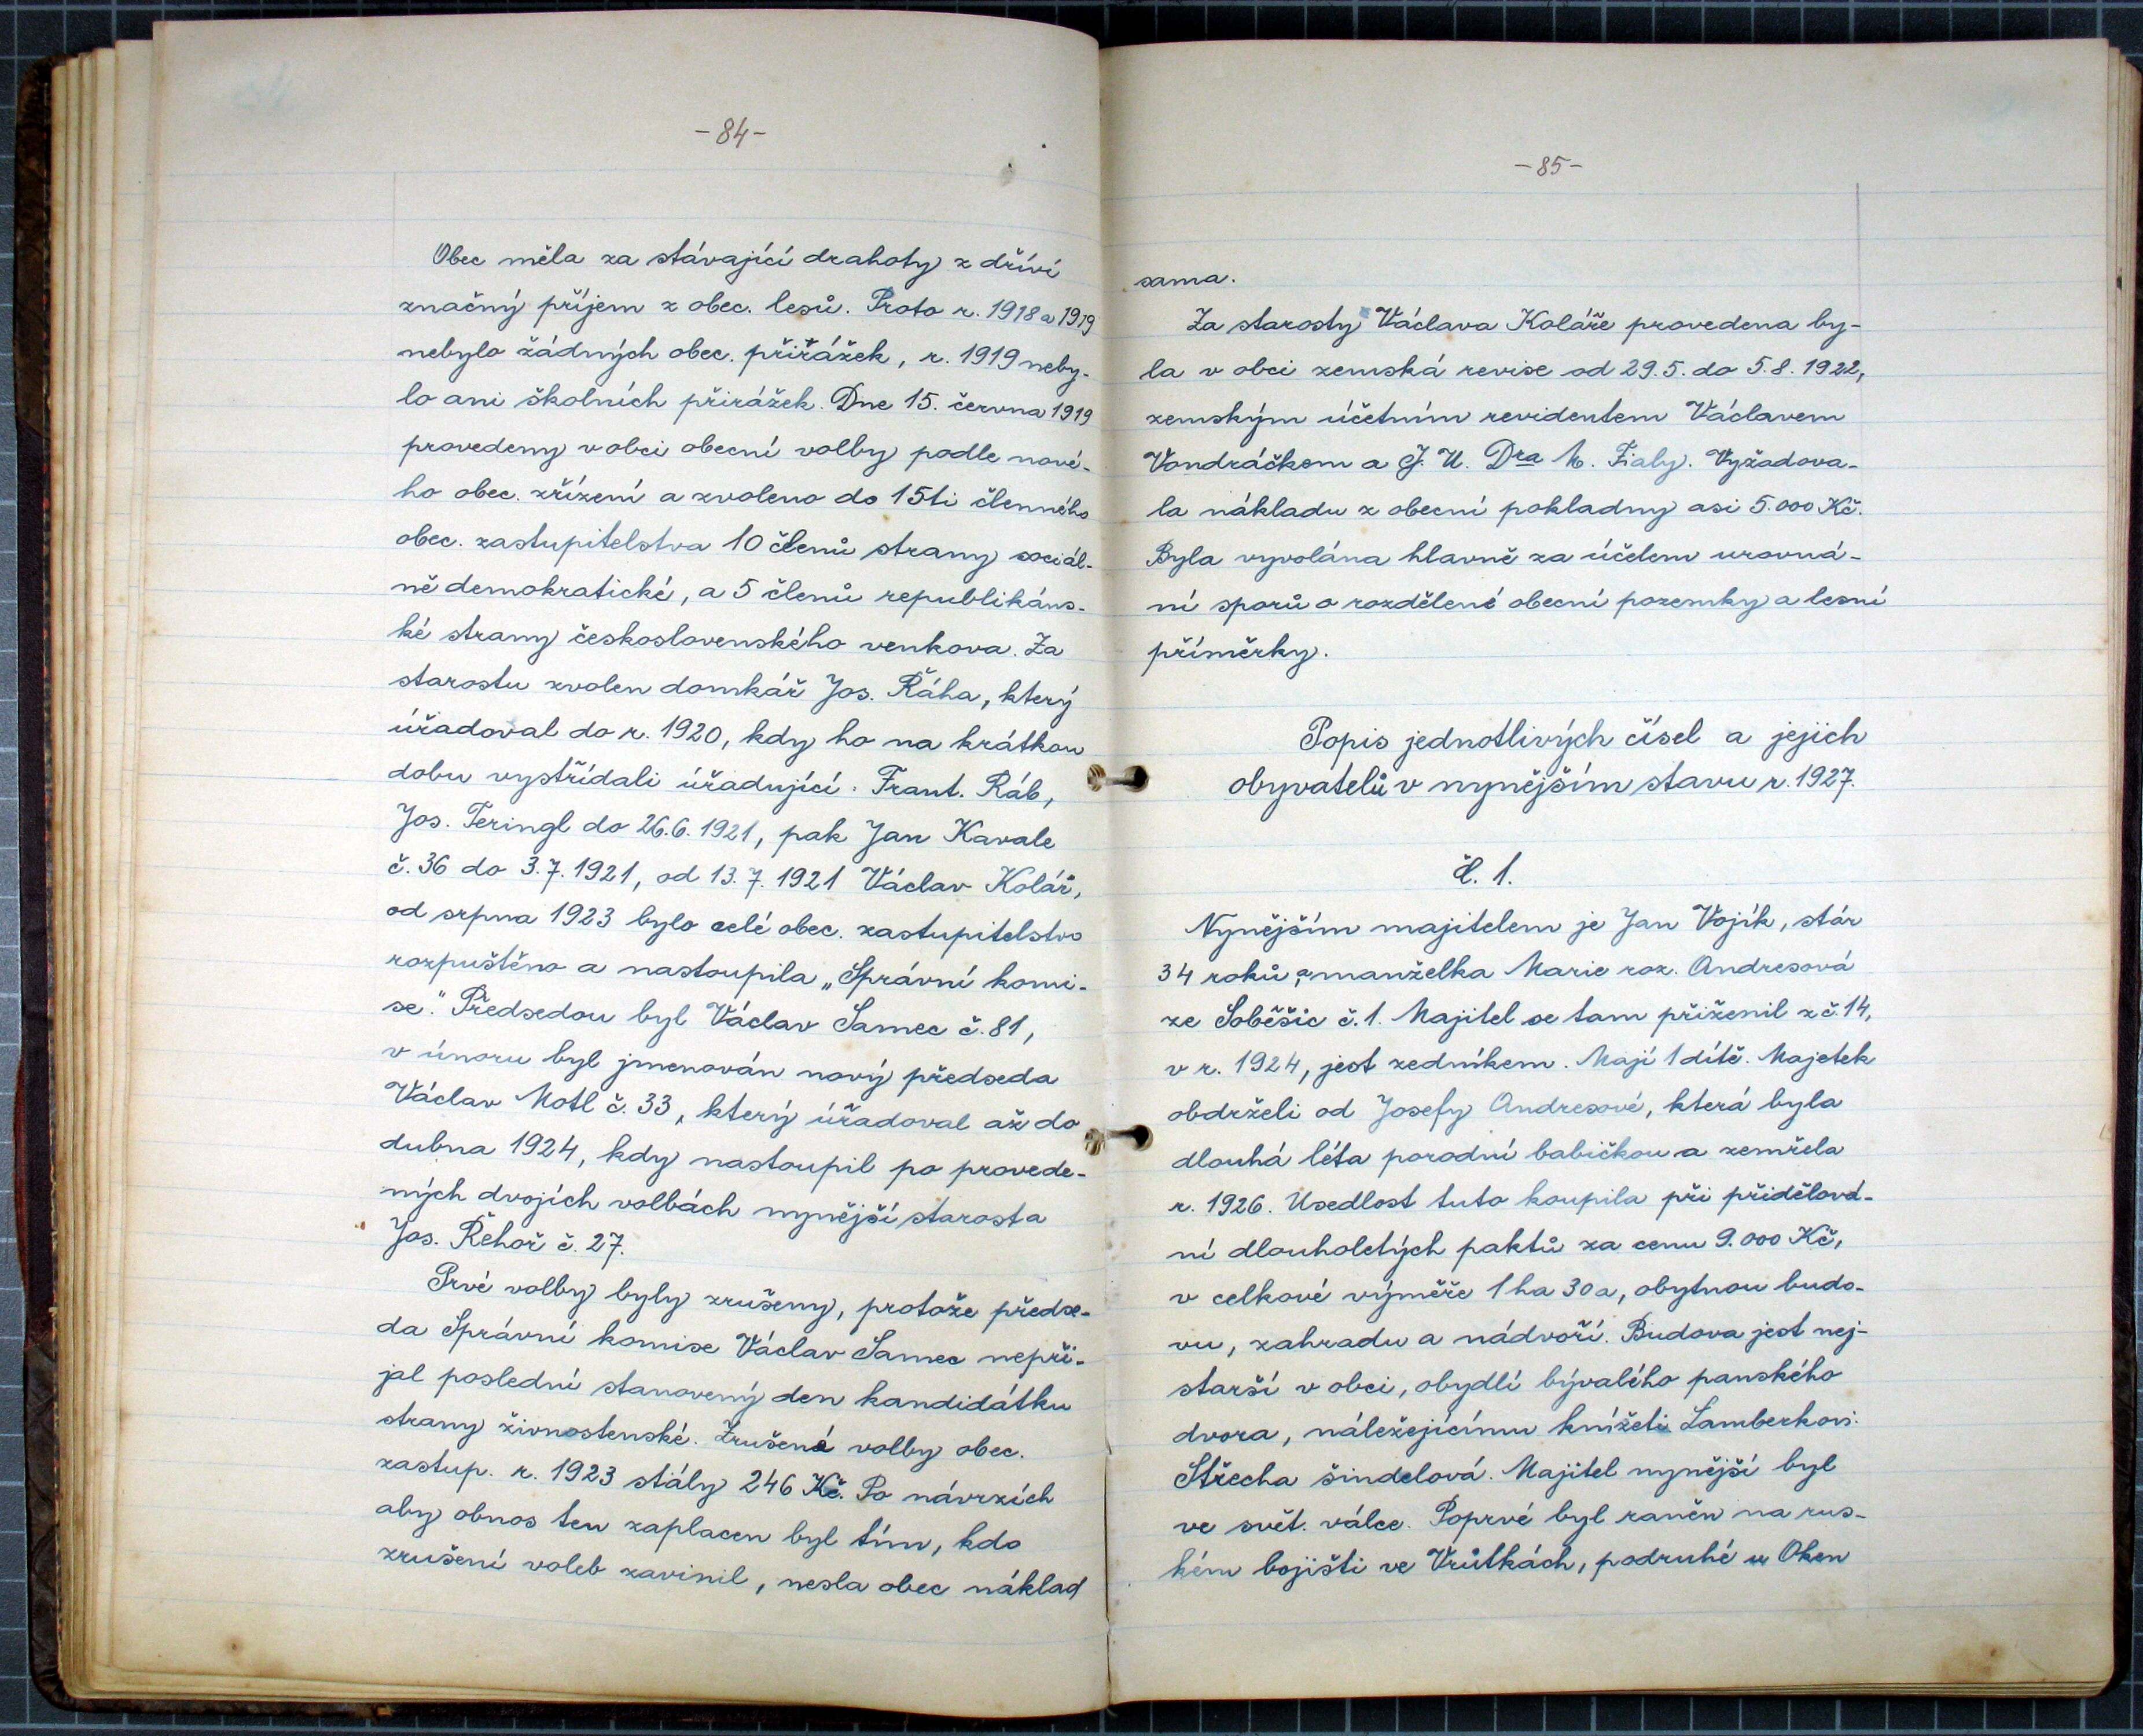 -84-
Obec měla za stávající drahoty z dříví
značný příjem z obec. lesů. Proto r. 1918 a 1919
nebylo žádných obec. přirážek, r. 1919 neby-
lo ani školních přirážek. Dne 15. června 1919
provedeny v obci obecní volby podle nové-
ho obec. zřízení a zvoleno do 15ti členného
obec. zastupitelstva 10 členů strany sociál-
ně demokratické, a 5 členů republikáns-
ké strany československého venkova. Za
starostu zvolen domkář Jos. Řáha, který
úřadoval do r. 1920, kdy ho na krátkou
dobu vystřídali úřadující. Frant. Ráb,
Jos. Teringl do 26.6. 1921, pak Jan Kavale
č. 36 do 3.7. 1921, od 13.7. 1921 Václav Kolář,
od srpna 1923 bylo celé obec. zastupitelstvo
rozpuštěno a nastoupila „Správní komi-
se." Předsedou byl Václav Samec č. 81,
v únoru byl jmenován nový předseda
Václav Motl č. 33, který úřadoval až do
dubna 1924, kdy nastoupil po provede-
ných dvojích volbách nynější starosta
Jos. Řehoř č. 27.
Prvé volby byly zrušeny, protože předse-
da Správní komise Václav Samec nepři-
jal poslední stanovený den kandidátku
strany živnostenské. Zrušené volby obec.
zastup. r. 1923 stály 246 Kč. Po návrzích
aby obnos ten zaplacen byl tím, kdo
zrušení voleb zavinil, nesla obec náklad
-85-
sama.
Za starosty Václava Koláře provedena by-
la v obci zemská revise od 29.5. do 5.8. 1922,
zemským účetním revidentem Václavem
Vondráčkem a J. U. Dra M. Fialy. Vyžadova-
la nákladu z obecní pokladny asi 5.000 Kč.
Byla vyvolána hlavně za účelem urovná-
ní sporů o rozdělené obecní pozemky a lesní
příměrky.
Popis jednotlivých čísel a jejich
obyvatelů v nynějším stavu r. 1927.
č. 1.
Nynějším majitelem je Jan Vojík, stár
34 roků, a manželka Marie roz. Andresová
ze Soběšic č. 1. Majitel se tam přiženil z č. 14,
v r. 1924, jest zedníkem. Mají 1 dítě. Majetek
obdrželi od Josefy Andresové, která byla
dlouhá léta porodní babičkou a zemřela
r. 1926. Usedlost tuto koupila při přidělová-
ní dlouholetých paktů za cenu 9.000 Kč,
v celkové výměře 1 ha 30 a, obytnou budo-
vu, zahradu a nádvoří. Budova jest nej-
starší v obci, obydlí bývalého panského
dvora, náležejícímu knížeti Lamberkovi.
Střecha šindelová. Majitel nynější byl
ve svět. válce. Poprvé byl raněn na rus-
kém bojišti ve Vrůtkách, podruhé u Oken